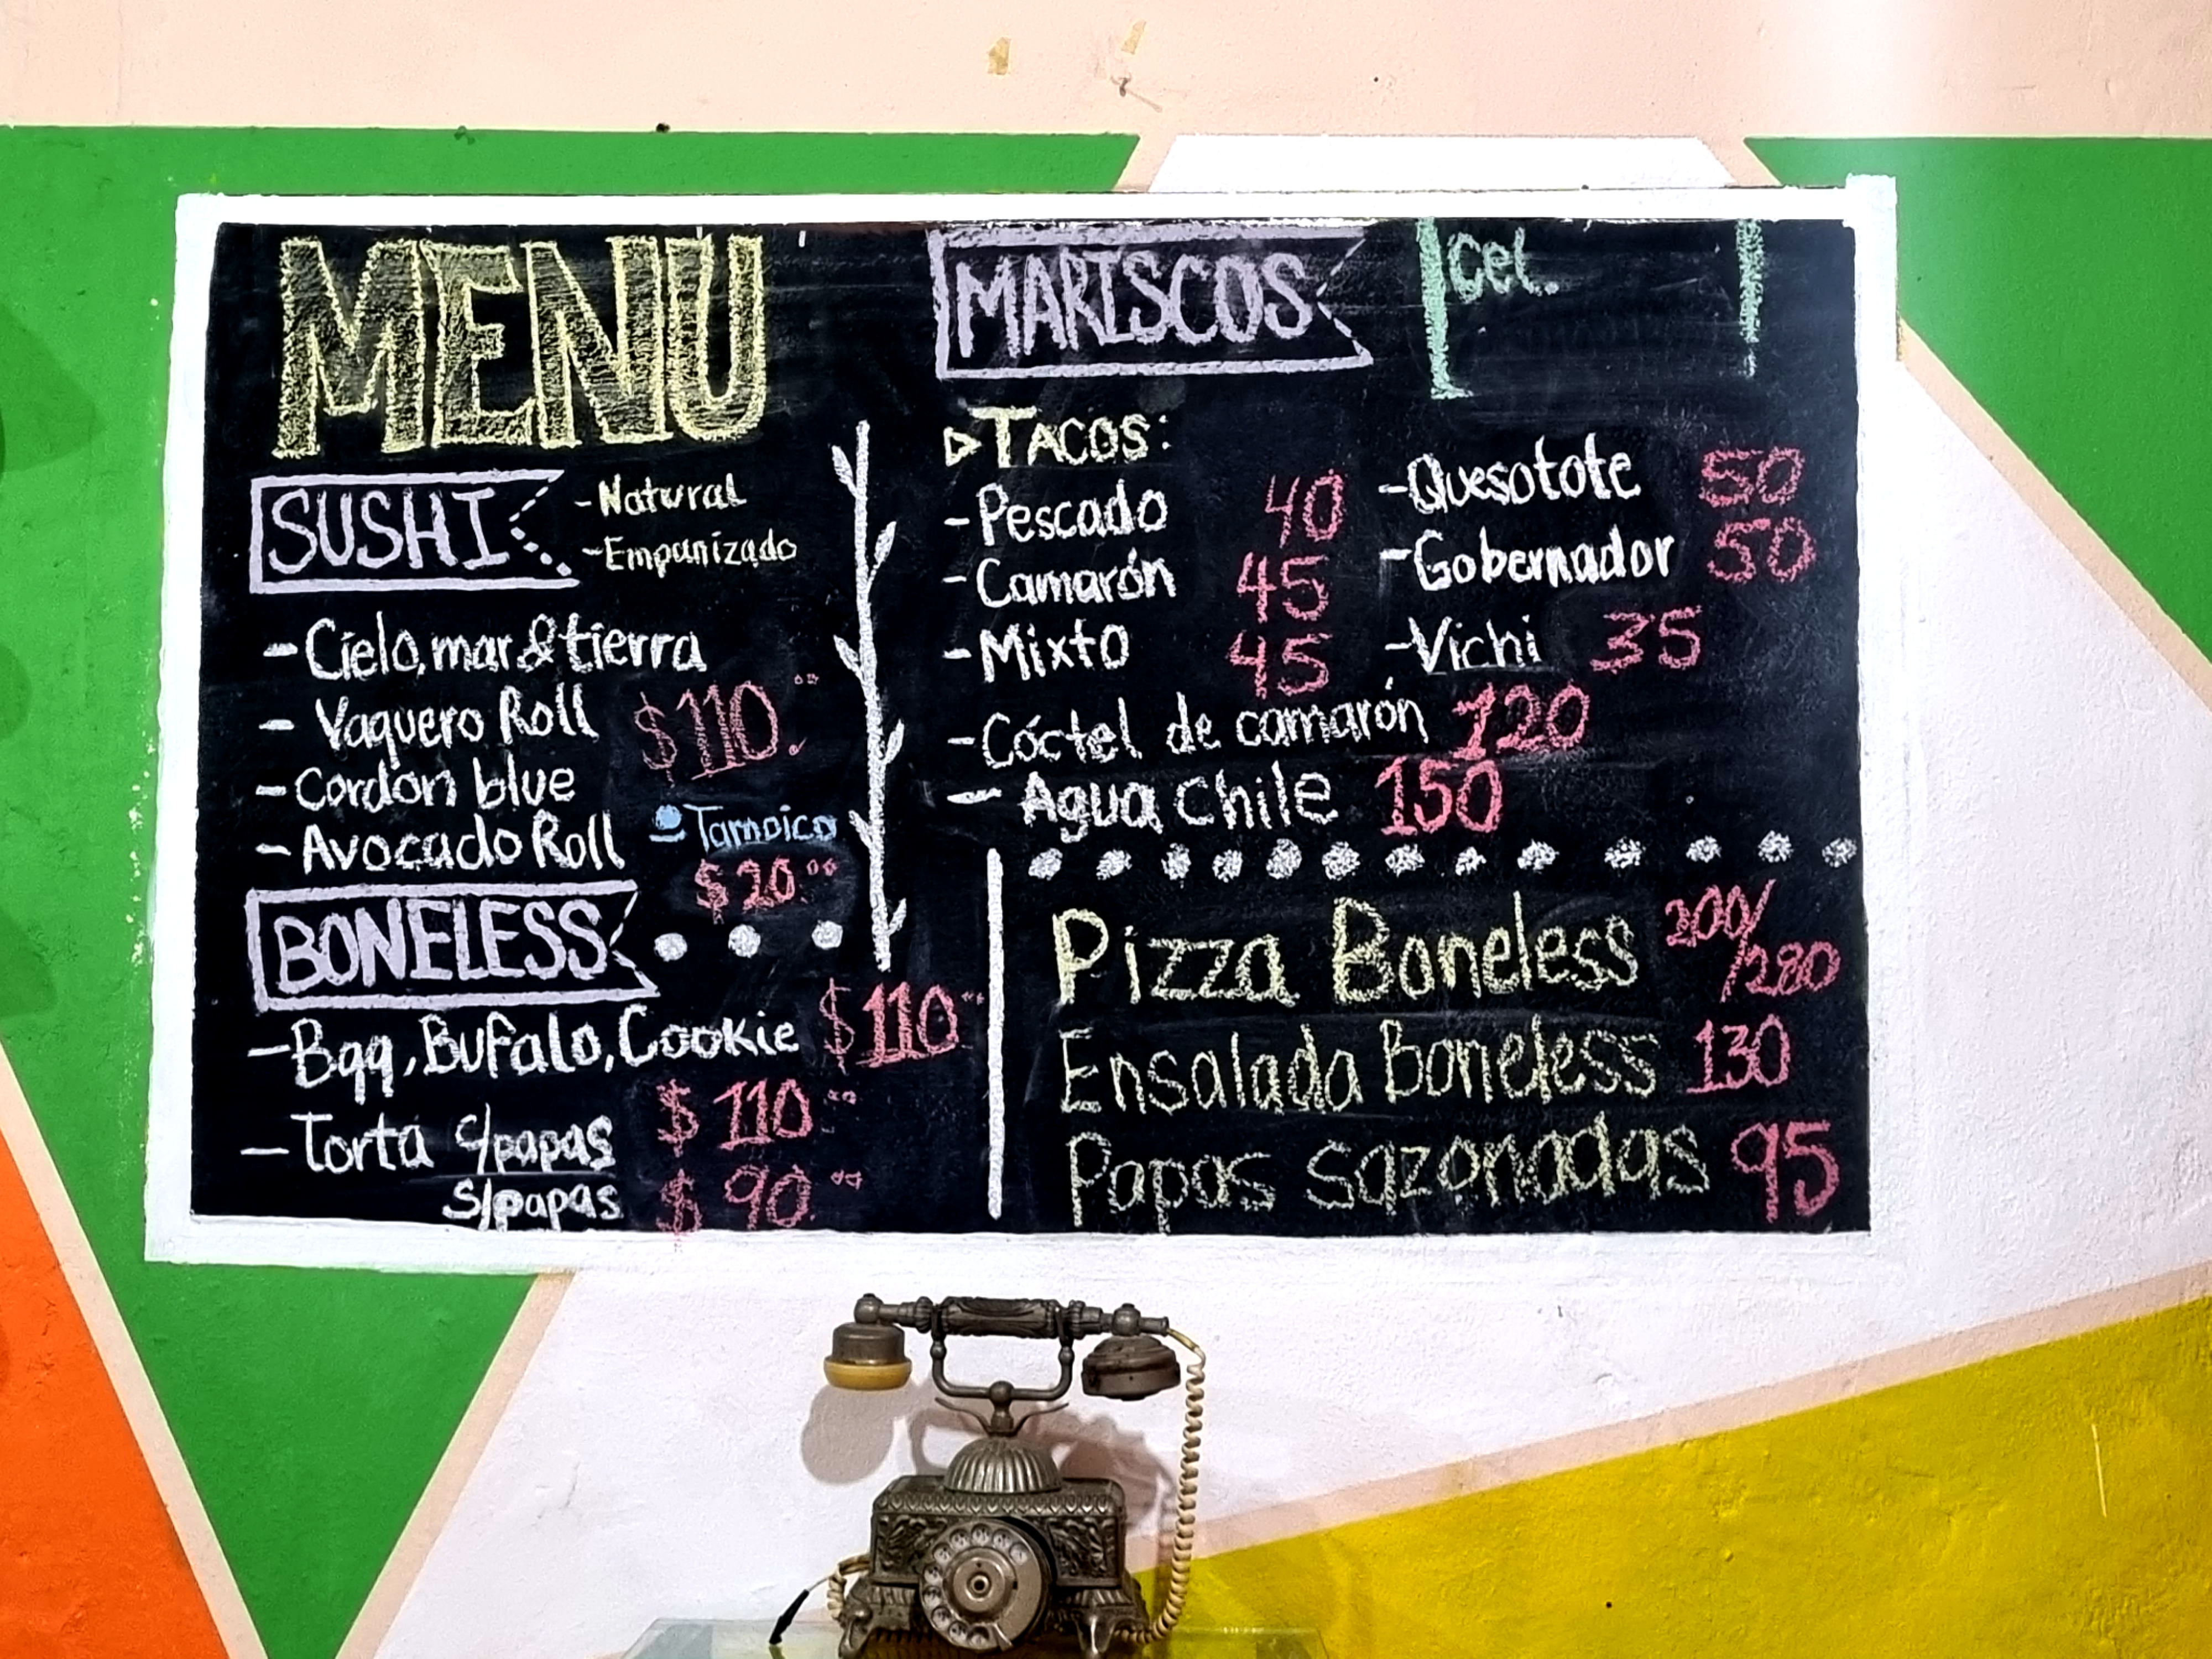 MENU
SUSHI
-Natural
-Empanizado
-Cielo, mar & tierra
- Vaquero Roll $110.00
- Cordon blue
- Avocado Roll
Tampico
$20.00
BONELESS
-Bqq, Bufalo, Cookie $110.00
-Torta c/papas $110.00
s/papas $90.00
MARISCOS
Cel.
TACOS:
-Pescado 40
-Camarón 45
-Mixto 45
-Quesotote 50
-Gobernador 50
-Vichi 35
-Cóctel de camarón 120
- Agua Chile 150
Pizza Boneless 200/280
Ensalada Boneless 130
Papas sazonadas 95